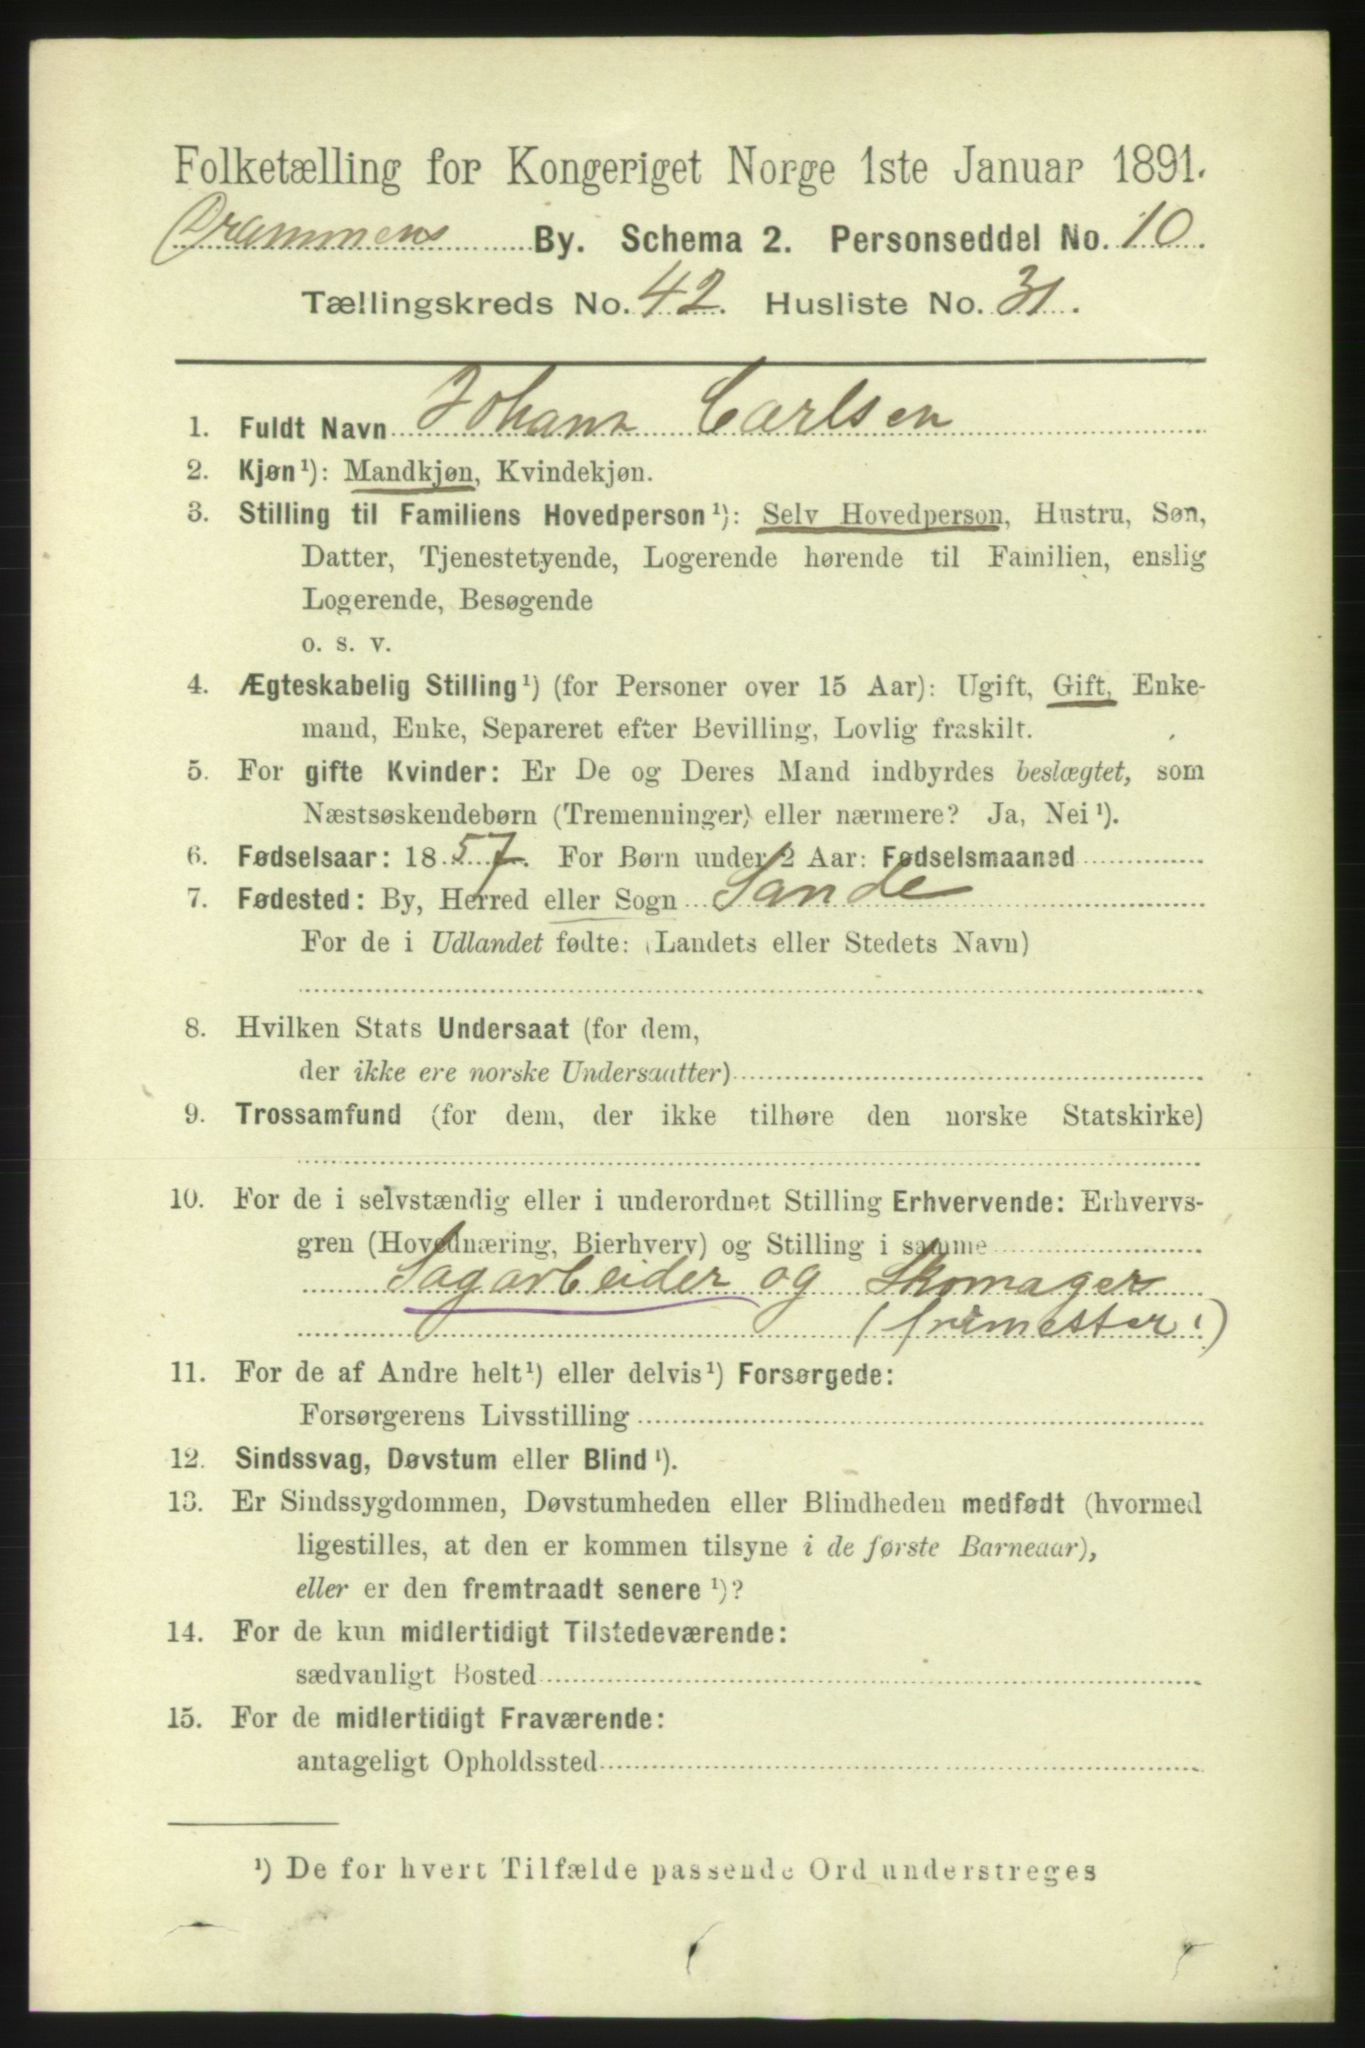 Folketælling for Kongeriget Norge 1ste Januar 1891.
Drammens By. Schema 2. Personseddel No. 10.
Tællingskreds No. 42. Husliste No. 31.
1. Fuldt Navn Johans Carlsen
2. Kjøn¹): Mandkjøn, Kvindekjøn.
3. Stilling til Familiens Hovedperson¹): Selv Hovedperson, Hustru, Søn,
Datter, Tjenestetyende, Logerende hørende til Familien, enslig
Logerende, Besøgende
o. s. v.
4. Ægteskabelig Stilling¹) (for Personer over 15 Aar): Ugift, Gift, Enke-
mand, Enke, Separeret efter Bevilling, Lovlig fraskilt.
5. For gifte Kvinder: Er De og Deres Mand indbyrdes beslægtet, som
Næstsøskendebørn (Tremenninger) eller nærmere? Ja, Nei¹).
6. Fødselsaar: 1857. For Børn under 2 Aar: Fødselsmaaned
7. Fødested: By, Herred eller Sogn Sande
For de i Udlandet fødte: (Landets eller Stedets Navn)
8. Hvilken Stats Undersaat (for dem,
der ikke ere norske Undersaatter)
9. Trossamfund (for dem, der ikke tilhøre den norske Statskirke)
10. For de i selvstændig eller i underordnet Stilling Erhvervende: Erhvervs-
gren (Hovednæring, Bierhverv) og Stilling i samme
Sagarbeider og Skomager
(frimester!)
11. For de af Andre helt¹) eller delvis¹) Forsørgede:
Forsørgerens Livsstilling
12. Sindssvag, Døvstum eller Blind¹).
13. Er Sindssygdommen, Døvstumheden eller Blindheden medfødt (hvormed
ligestilles, at den er kommen tilsyne i de første Barneaar),
eller er den fremtraadt senere¹)?
14. For de kun midlertidigt Tilstedeværende:
sædvanligt Bosted
15. For de midlertidigt Fraværende:
antageligt Opholdssted
¹) De for hvert Tilfælde passende Ord understreges